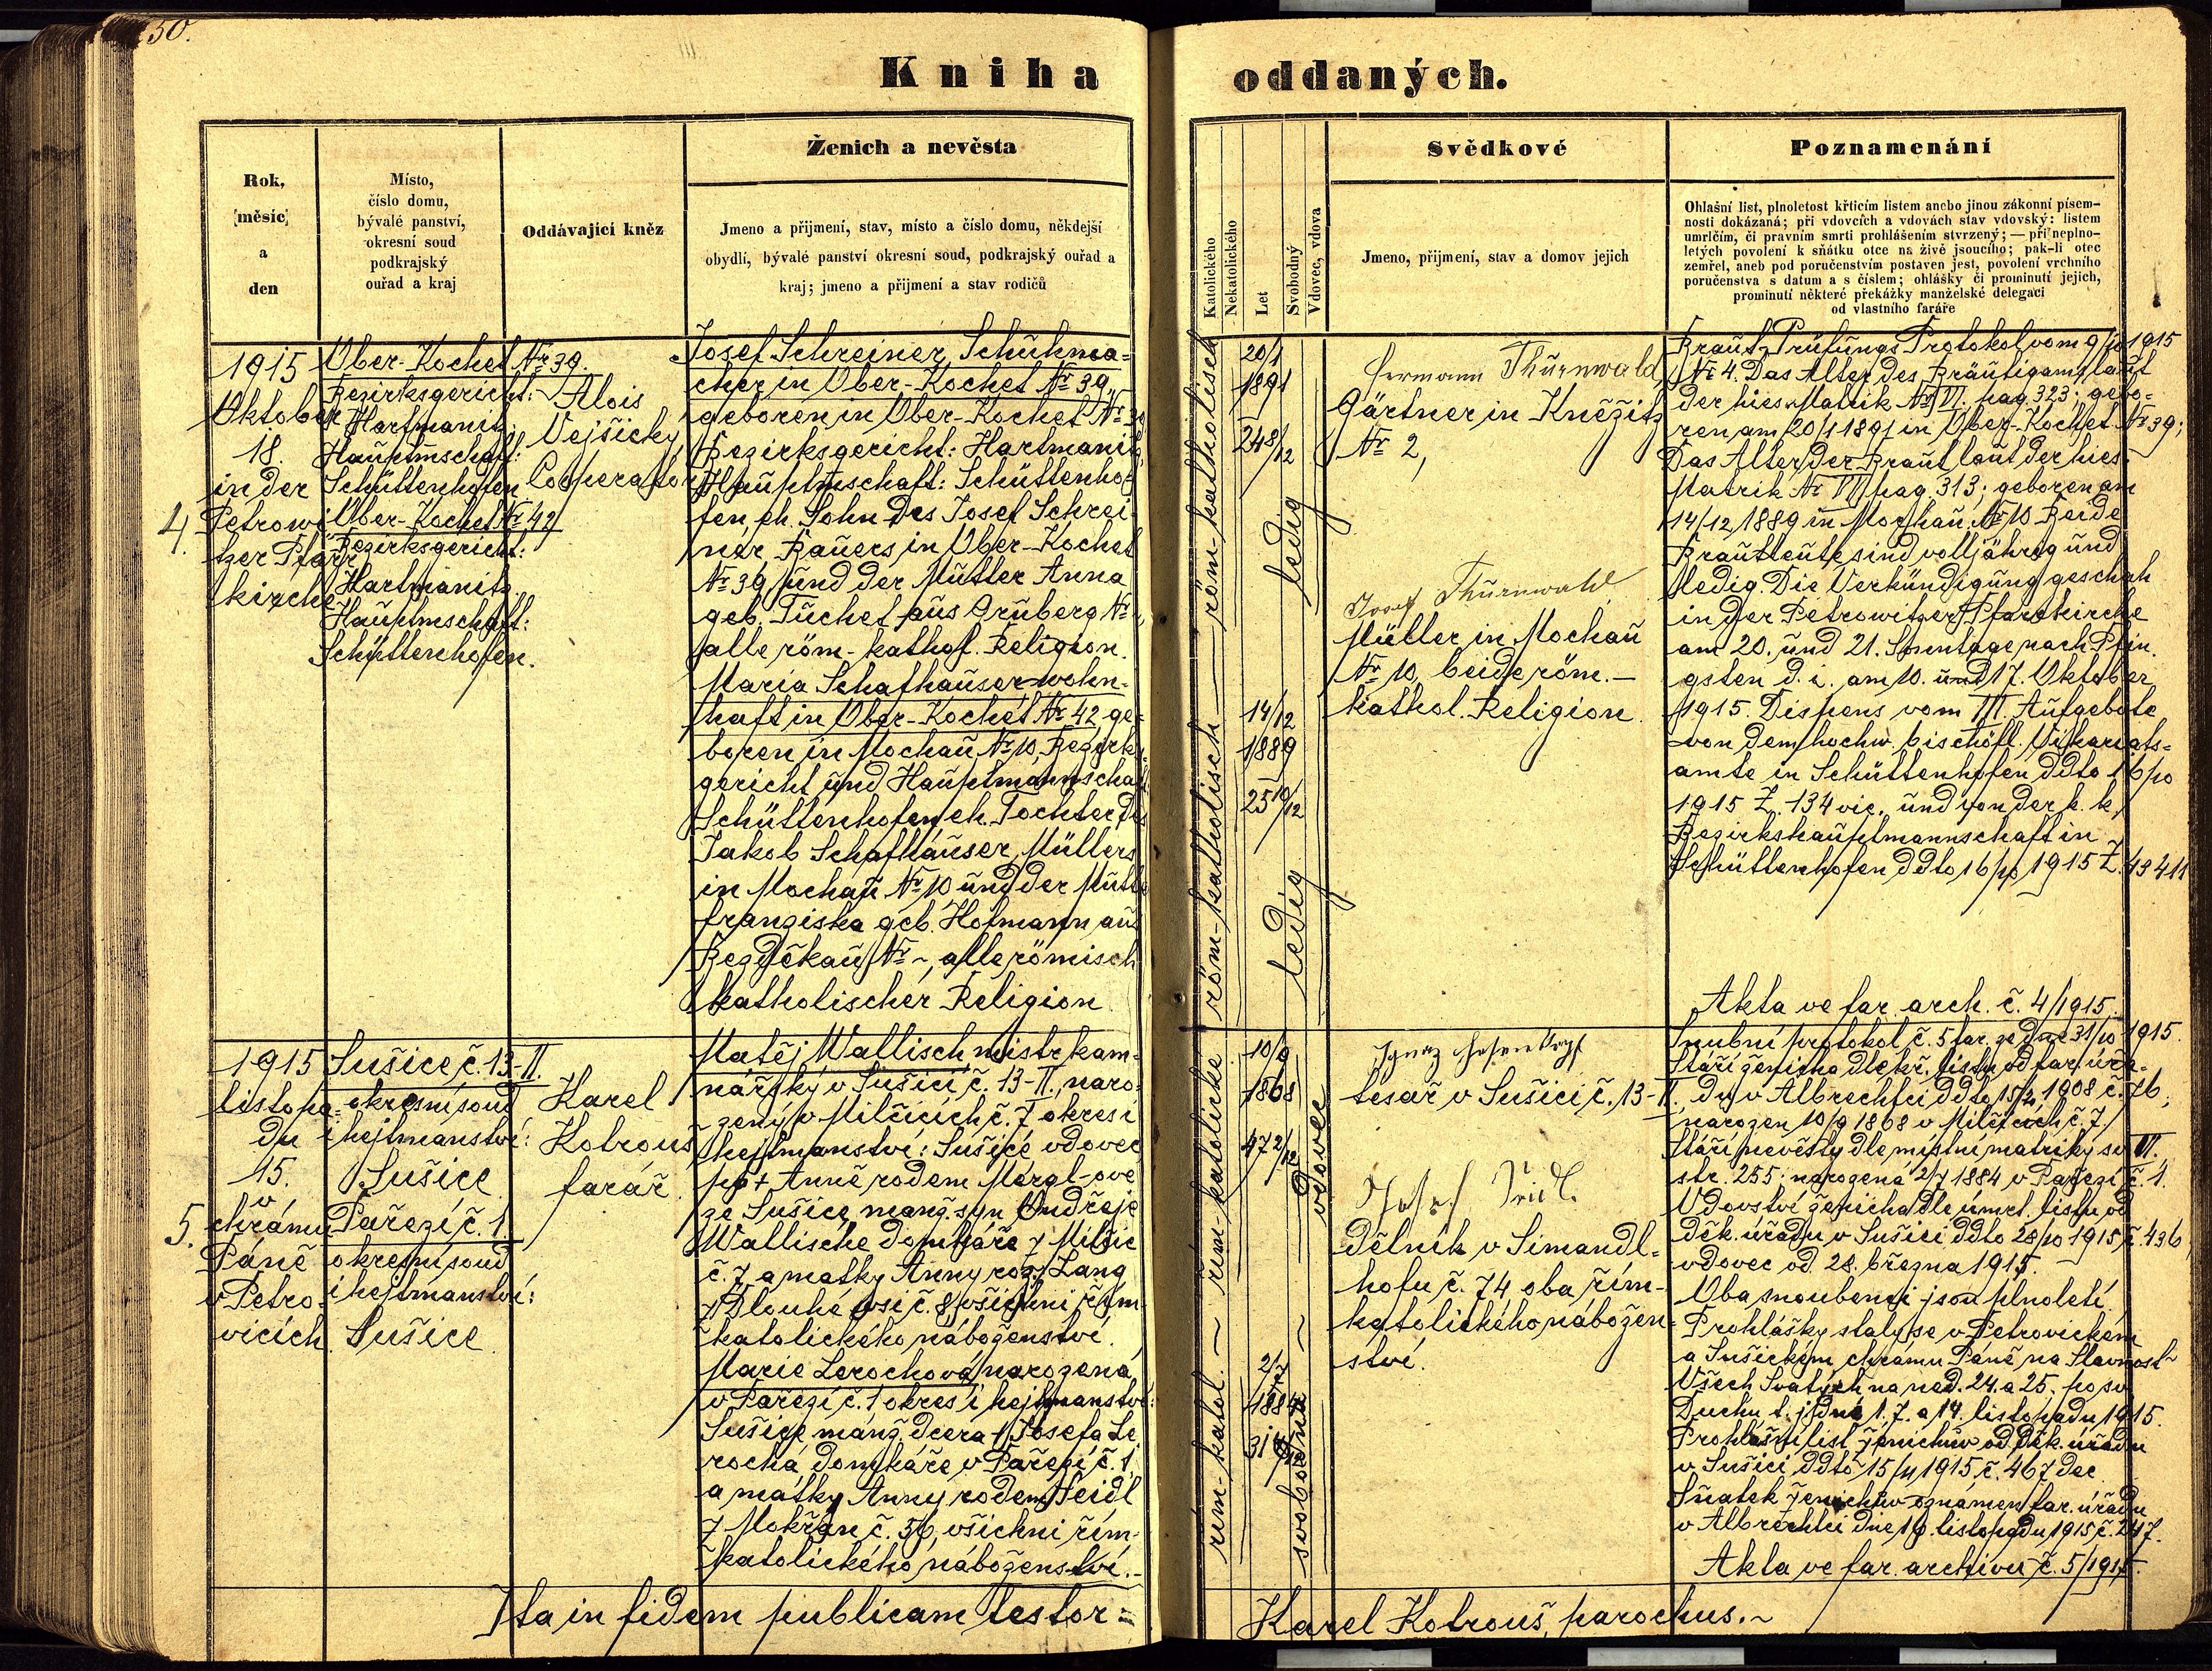 50.
Kniha oddaných.
Rok,
měsíc
a
den
Místo,
číslo domu,
bývalé panství,
okresní soud
podkrajský
ouřad a kraj
Oddávající kněz
Ženich a nevěsta
Jmeno a přijmení, stav, místo a číslo domu, někdejší
obydlí, bývalé panství okresní soud, podkrajský ouřad a
kraj; jmeno a přijmení a stav rodičů
Katolického
Nekatolického
Let
Svobodný
Vdovec, vdova
Svědkové
Jmeno, přijmení, stav a domov jejich
Poznamenání
Ohlašní list, plnoletost křticím listem anebo jinou zákonní písem-
nosti dokázaná; při vdovcích a vdovách stav vdovský: listem
umrlčím, či pravním smrti prohlášením stvrzený; — při neplno-
letých povolení k sňátku otce na živě jsoucího; pak-li otec
zemřel, aneb pod poručenstvím postaven jest, povolení vrchního
poručenstva s datum a s číslem; ohlášky či prominutí jejich,
prominutí některé překážky manželské delegací
od vlastního faráře
4.
1915
Oktober
18.
in der
Petrowi
tzer Pfarr
kirche
Ober-Kochet Nr 39.
Bezirksgericht:
Hartmanitz
Hauptmschaft:
Schüttenhofen
Ober-Kochet Nr 42
Bezirksgericht:
Hartmanitz
Hauptmschaft:
Schüttenhofen.
Alois
Vejšický,
Cooperator
Josef Schreiner, Schuhma-
cher in Ober-Kochet Nr 39,
geboren in Ober-Kochet Nr 39
Bezirksgericht: Hartmanitz,
Hauptmschaft: Schüttenho-
fen, eh. Sohn des Josef Schrei-
ner Bauers in Ober-Kochet
Nr 39 und der Mutter Anna
geb. Tuchet aus Gruberg Nr
alle röm-kathol. Religion.
Maria Schafhauser wohn-
haft in Ober-Kochet Nr 42 ge-
boren in Mochau Nr 10, Bezirks-
gericht und Hauptmannschaft
Schüttenhofen, eh. Tochter des
Jakob Schafhauser, Müllers
in Mochau Nr 10 und der Mutter
Franziska geb. Hofmann aus
Bezděkau Nr ~, alle römisch
katholischer Religion
röm-katholisch — röm-katholisch
20/1
1891
24 8/12
ledig
14/12
1889
25 10/12
ledig
Hermann Thurnwald,
Gärtner in Kněžitz
Nr 2,
Josef Thurnwald
Müller in Mochau
Nr 10, beide röm.-
kathol. Religion.
Braut-Prüfungs Protokol vom 9/10 1915
Nr 4. Das Alter des Bräutigams laut
der hies. Matrik Nr VI. pag. 323: gebo-
ren am 20/1 1891 in Ober-Kochet Nr 39;
Das Alter der Braut laut der hies.
Matrik Nr VI pag. 313; geboren am
14/12 1889 in Mochau Nr 10 Beide
Brautleute sind volljährig und
ledig. Die Verkündigung geschah
in der Petrowitzer Pfarrkirche
am 20. und 21. Sonntage nach Pfin-
gsten d. i. am 10. und 17. Oktober
1915. Dispens vom III. Aufgebote
von dem hochw. bischöfl. Vikariats-
amte in Schüttenhofen ddto 16/10
1915 Z. 134 vic. und von der k. k.
Bezirkshauptmannschaft in
Schüttenhofen ddto 16/10 1915 Z.
Akta ve far. arch. č. 4/1915.
5.
1915
listopa-
du
15.
v
chrámu
Páně
v Petro-
vicích
Sušice č. 13-II.
okresní soud
i hejtmanství:
Sušice
Pařezí č. 1
okresní soud
i hejtmanství:
Sušice
Karel
Kotrouš
farář.
Matěj Wallisch mistr kam-
nářský v Sušici č. 13-II., naro-
zený v Milčicích č. 7 okres i
hejtmanství: Sušice vdovec
po + Anně rodem Märgl-ové
ze Sušice, manž. syn Ondřeje
Wallische domkáře z Milčic
č. 7 a matky Anny roz. Lang
z Dlouhé vsi č. 8, všichni řím-
katolického náboženství.
Marie Lerochová narozená
v Pařezí č. 1 okres i hejtmanství:
Sušice manž. dcera + Josefa Le
rocha domkáře v Pařezí č. 1
a matky Anny rodem Heidl
z Mokřan č. 56, všichni řím-
katolického náboženství.-
řím-katol. ~ řím-katolické
10/9
1868
47 2/12
vdovec
2/7
1884
31 4/12
svobodná
tesař v Sušici č. 13-II.
dělník v Simandl-
hofu č. 74 oba řím-
katolického nábožen-
ství.
Snubní protokol č. 5 far. ze dne 31/10 1915.
Stáří ženicha dle kř. listu od far. úřa-
du v Albrechtci ddto 1908 č. 76;
narozen 10/9 1868 v Milčicích č. 7
Stáří nevěsty dle místní matriky sv VI.
str. 255: narozená 2/7 1884 v Pařezí č. 1.
Vdovství ženicha dle úmrt. listu od
děk. úřadu v Sušici ddto 28/10 1915 č. 436
vdovec od 28. března 1915.
Oba snoubenci jsou plnoletí.
Prohlášky staly se v Petrovickém
a Sušickém chrámu Páně na Slavnost
Všech Svatých na ned. 24. a 25. po sv.
Duchu t. j. dne 1. 7. a 14. listopadu 1915.
Prohlášní list ženichův od děk. úřadu
v Sušici ddto 15/11 1915 č. 467 dec.
Sňatek ženichův oznámen far. úřadu
v Albrechtci dne 19. listopadu 1915 č. 247.
Akta ve far. archivu č. 5/1915.
Ita in fidem publicam testor =
Karel Kotrouš, parochus.~